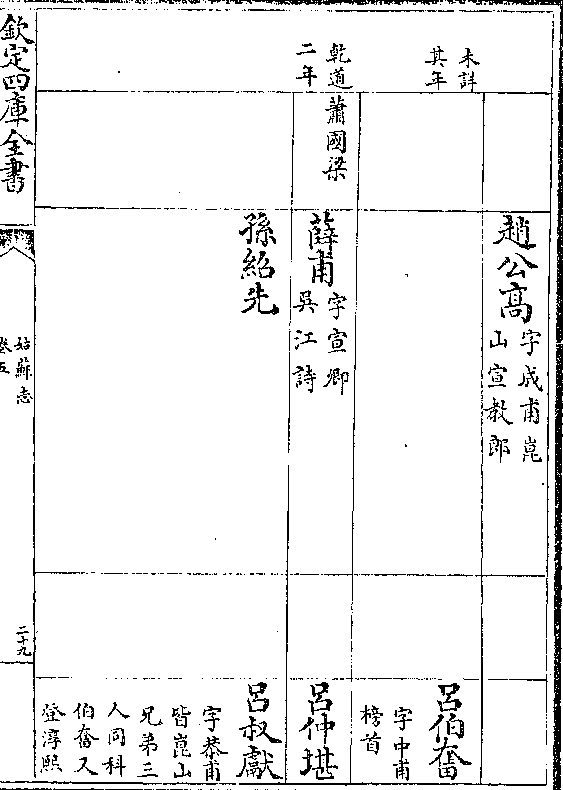 趙公髙
字成甫崑
山宣教郎
未詳
其年
呂伯奮
字中甫
榜首
乾道
二年
蕭國梁
薛甫
字宣卿
吳江詩
呂仲堪
孫紹先
呂叔獻
字恭甫
皆崑山
兄弟三
人同科
伯奮又
登淳熙
欽定四庫全書
姑蘇志
卷五
二十九